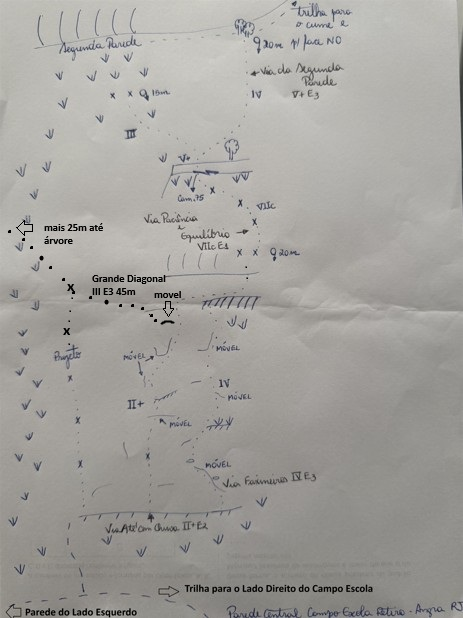 trilha para
o cume e
p/ face NO
20m
Segunda Parede
Via da Segunda
Parede
V+ E3
IV
15m
III
V+
Cam. .75
VIIc
Via Paciência
e
Equilíbrio
VIIc E1
20m
mais 25m até
árvore
Grande Diagonal
III E3 45m
movel
Projeto
MÓVEL
MÓVEL
MÓVEL
IV
II+
MÓVEL
MÓVEL
MÓVEL
Via Faximeiros IV E3
Via Até com Chuva II+ E2
Trilha para o Lado Direito do Campo Escola
Parede do Lado Esquerdo
Parede Central Campo Escola Retiro - Angra RJ